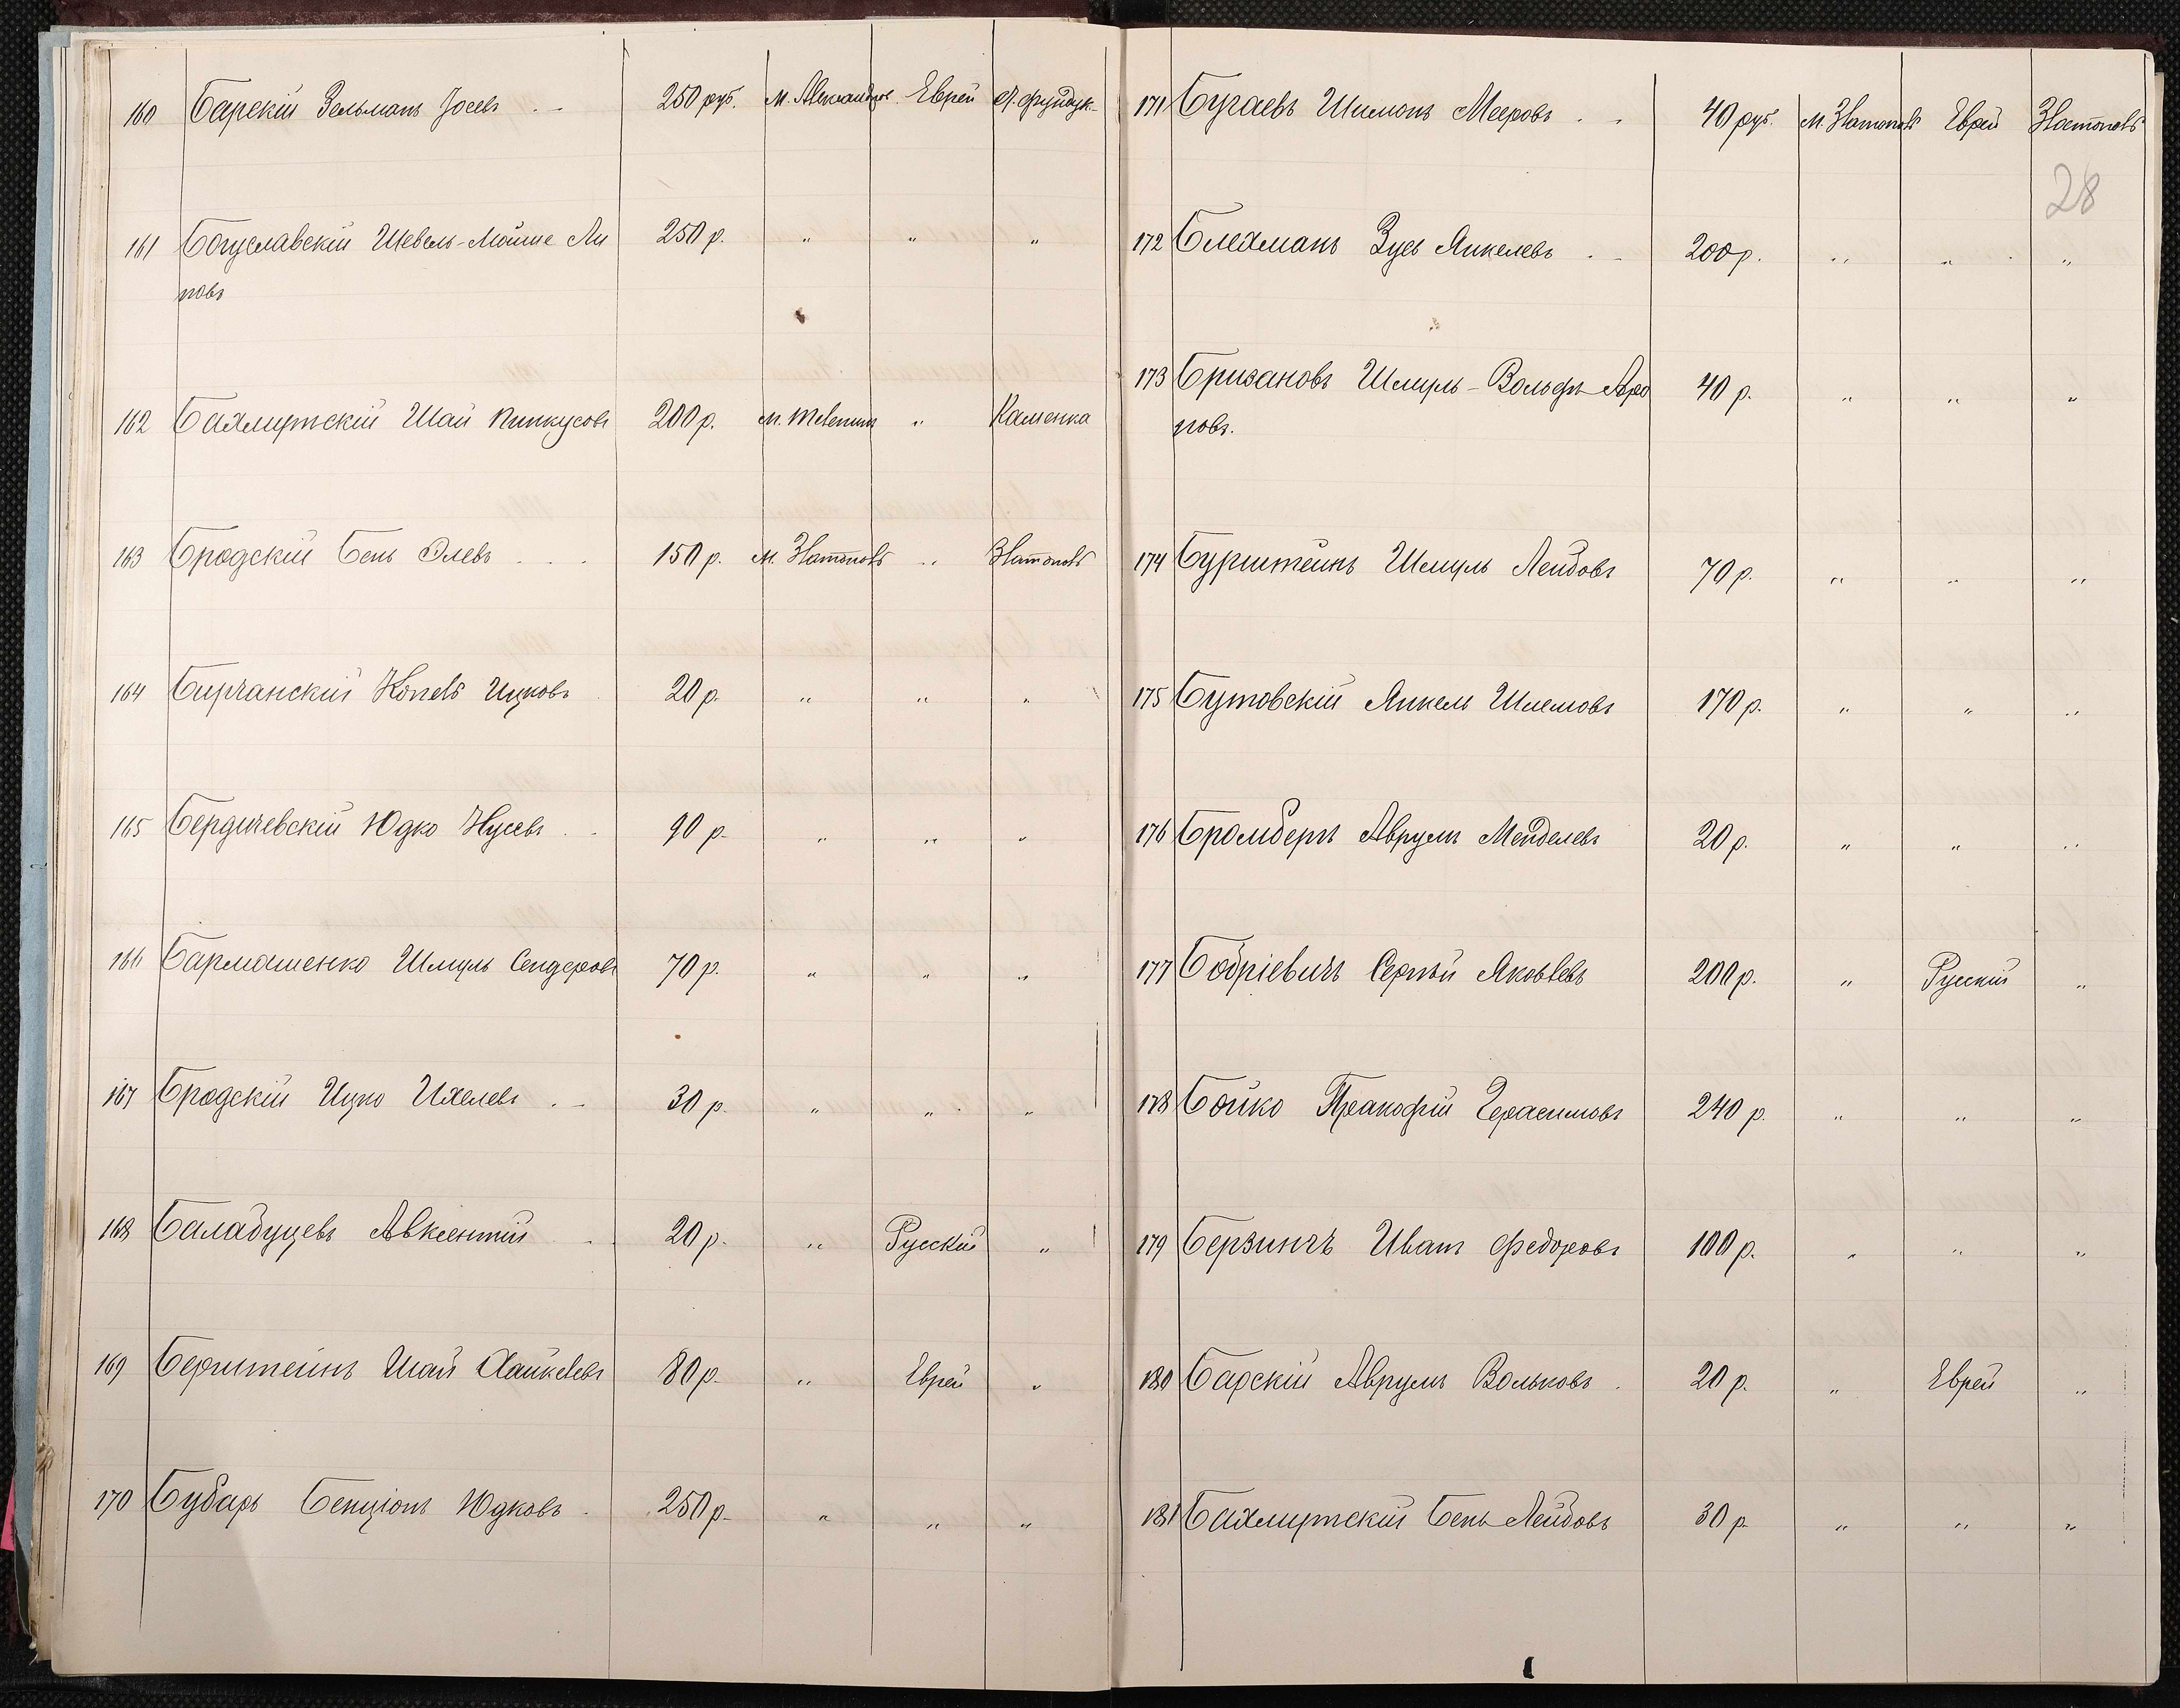 160 Барскій Зельманъ Іосевъ 250 руб. м. Александров. Еврей
161 Богуславскій Шевель-Мойше Ли 250 р. " " "
повъ
162 Бахмутскій Шай Пинкусовъ 200 р. м. Телепин " Каменка
163 Бродскій Бень Элевъ 150 р. м. Златополь " Златополь
164 Бирчанскій Копель Ицковъ 20 р. " " "
165 Бердичевскій Юдко Нусевъ 90 р. " " "
166 Бармашенко Шмуль Сендеровъ 70 р. " " "
167 Бродскій Ицко Ихелевъ 30 р. " " "
168 Балабуцевъ Авксентій 20 р. " Русскій "
169 Бернштейнъ Шай Хайкелевъ 80 р. " Еврей "
170 Бубаръ Бенціонъ Юдковъ 250 р. " " "
171 Бугаевъ Шимонъ Мееровъ 40 руб. м. Златополь Еврей Златополь
28
172 Блехманъ Зусь Янкелевъ 200 р. " " "
173 Шмуль-Вольфъ Аро 40 р. " " "
новъ.
174 Бурштейнъ Шмуль Лейбовъ 70 р. " " "
175 Бутовскій Янкель Шлемовъ 170 р. " " "
176 Бромбергъ Аврумъ Менделевъ 20 р. " " "
177 Бобріевичъ Сергѣй Яковлевъ 200 р. " Русскій "
178 Бойко Прокофій Герасимовъ 240 р. " " "
179 Берзинъ Иванъ Федоровъ 100 р. " " "
180 Барскій Аврумъ Вольковъ 20 р. " Еврей "
181 Бахмутскій Бень Лейбовъ 30 р. " " "